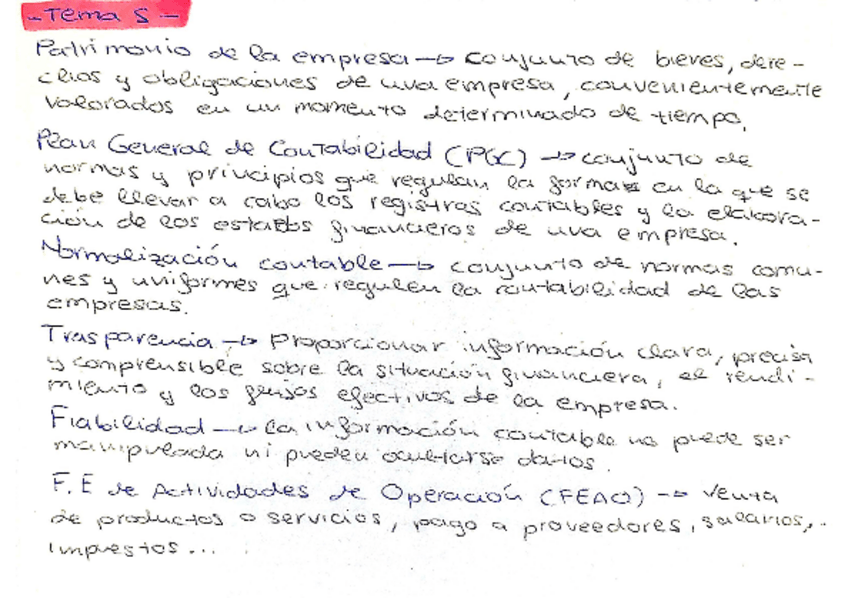 - Tema 5 -
Patrimonio de la empresa → conjunto de bienes, dere-
chos y obligaciones de una empresa, convenientemente
valorados en un momento determinado de tiempo.
Plan General de Contabilidad (PGC) → conjunto de
normas y principios que regulan la forma en la que se
debe llevar a cabo los registros contables y la elabora-
ción de los estados financieros de una empresa.
Normalización contable → conjunto de normas comu-
nes y uniformes que regulen la contabilidad de las
empresas.
Trasparencia → Proporcionar información clara, precisa
y comprensible sobre la situación financiera, el rendi-
miento y los flujos efectivos de la empresa.
Fiabilidad → La información contable no puede ser
manipulada ni pueden ocultarse datos.
F.E de Actividades de Operación (FEAO) → Venta
de productos o servicios, pago a proveedores, salarios,..
impuestos...